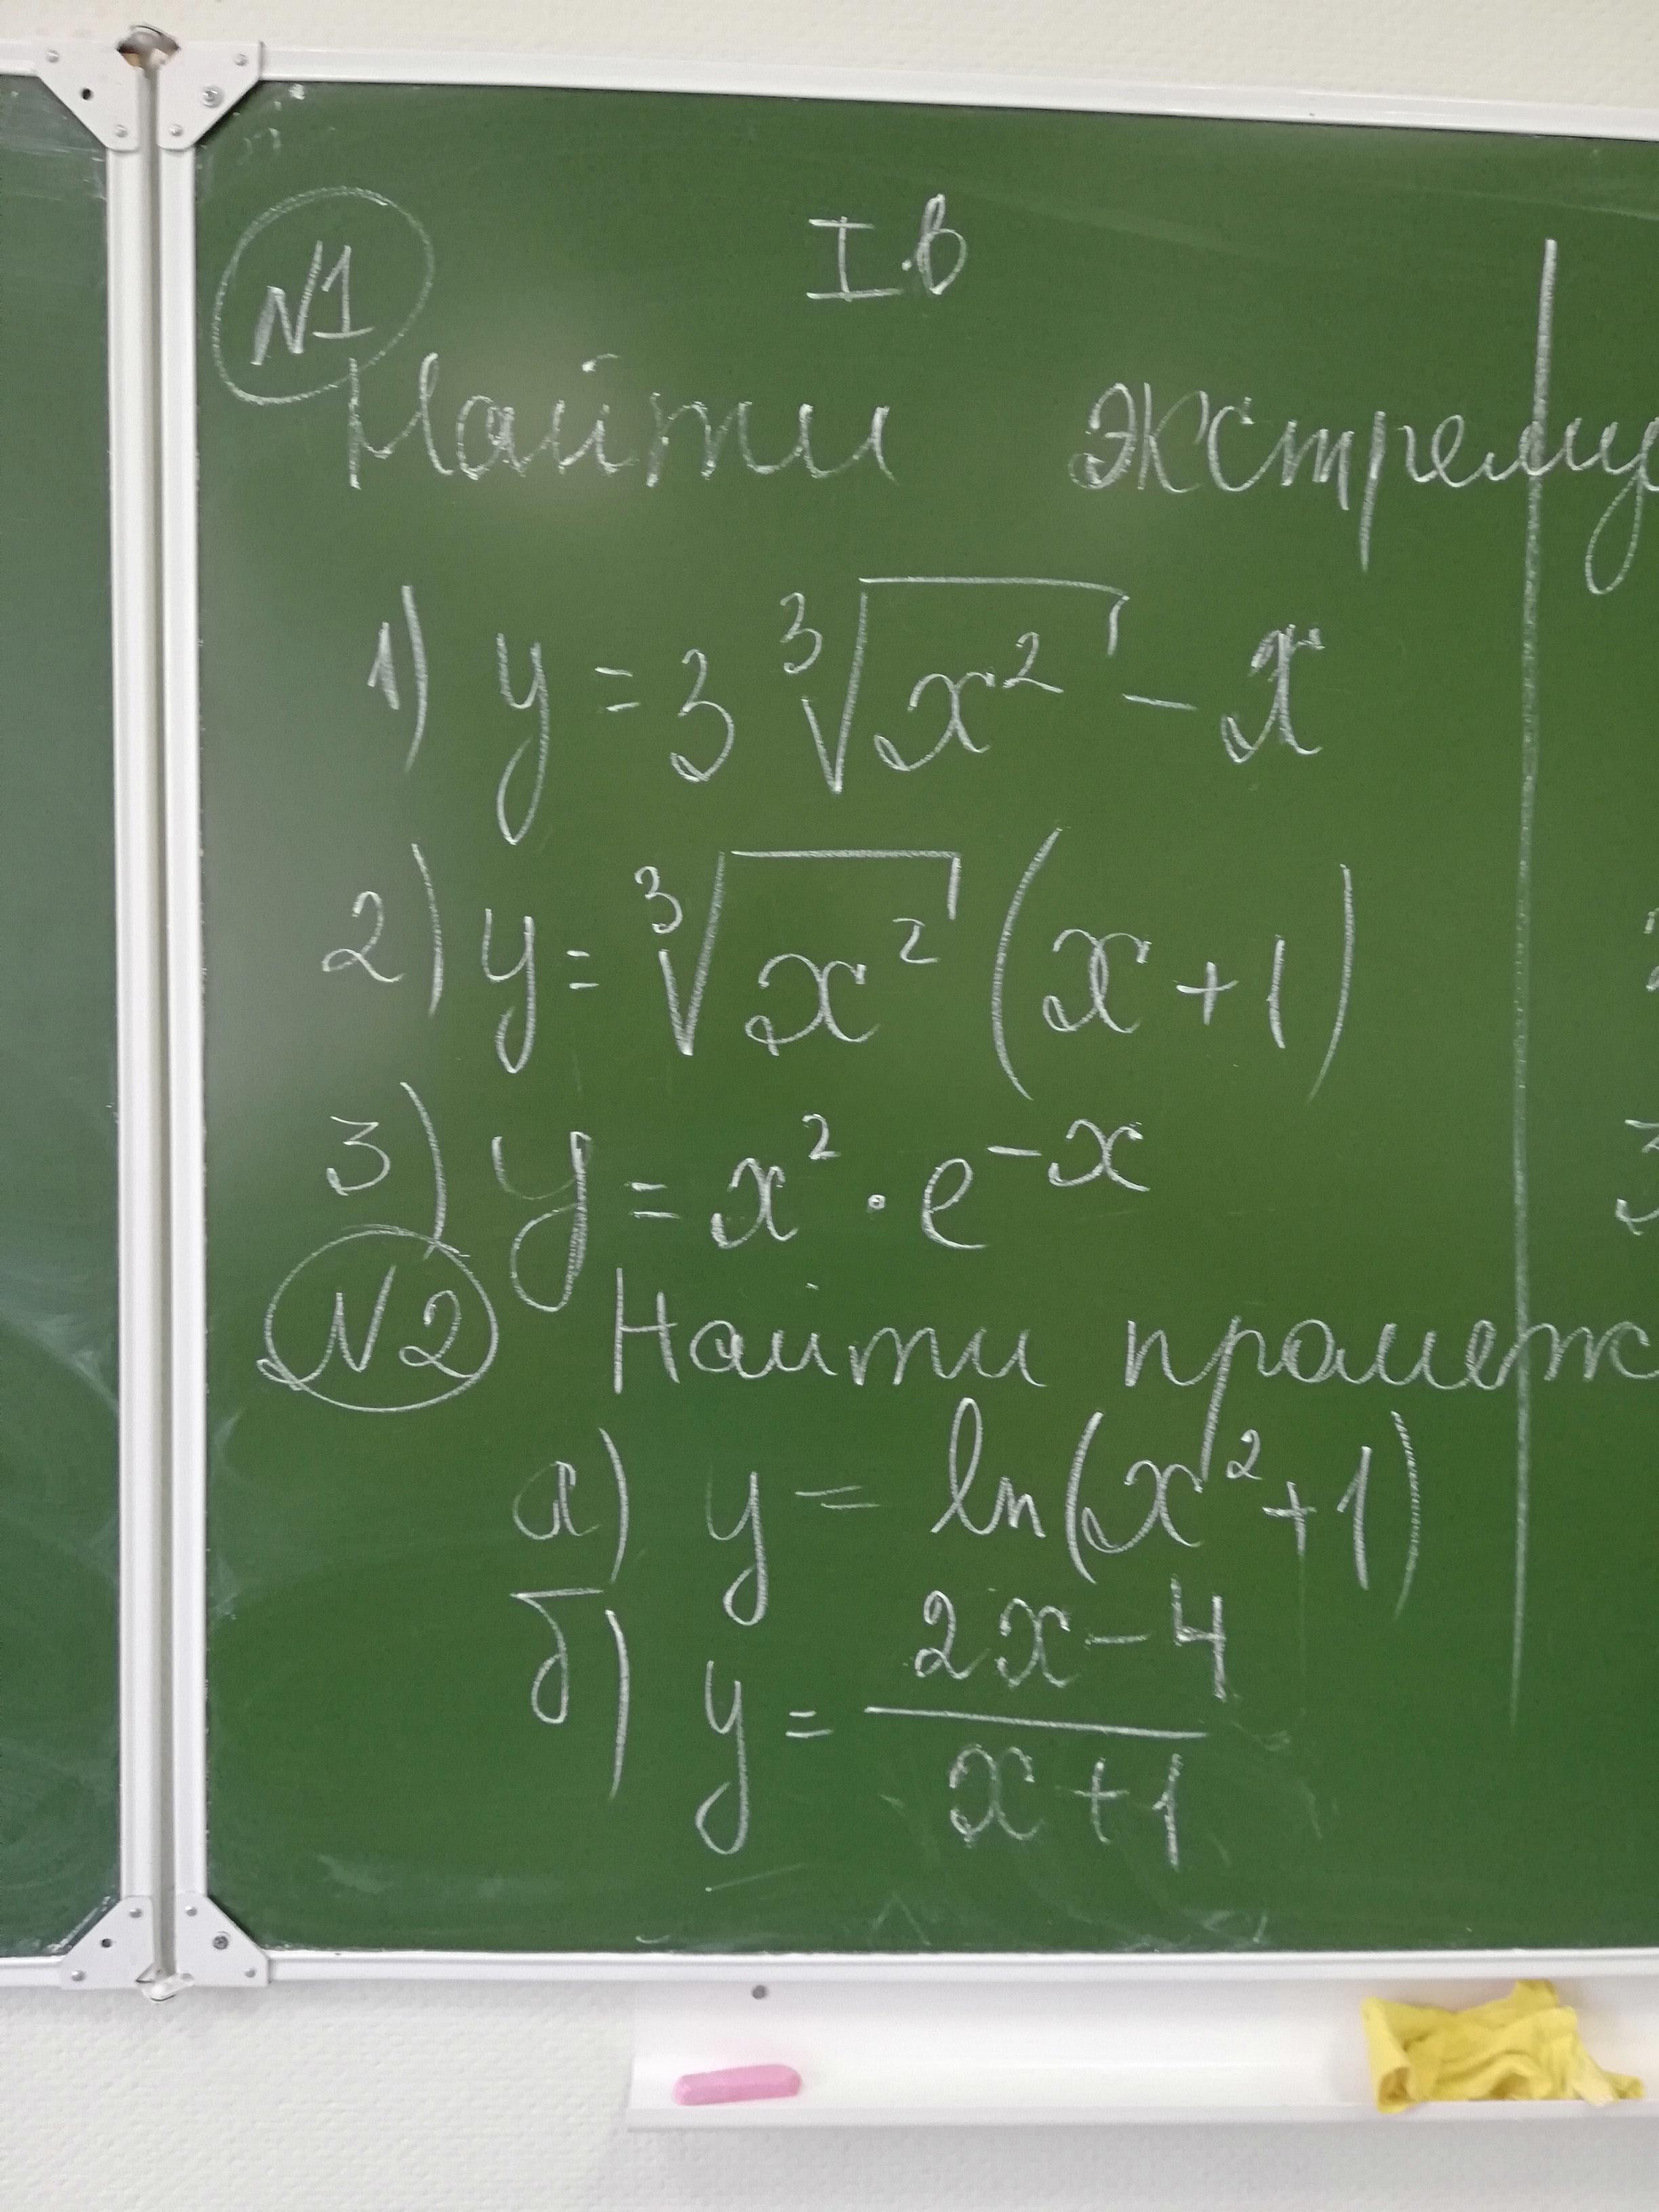 №1
I.в
Найти экстрему
1) y = 3 ∛x² - x
2) y = ∛x² (x + 1)
3) y = x² · e^(-x)
№2 Найти промеж
а) y = ln(x² + 1)
б) y = (2x - 4)/(x + 1)
3